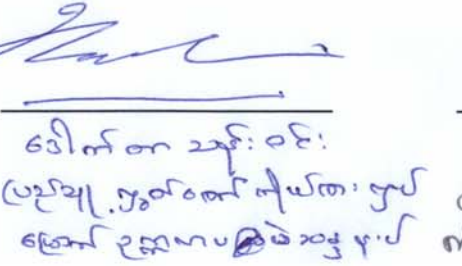 ဒေါက်တာ သန်းဝင်း
ပြည်သူ့လွှတ်တော် ကိုယ်စားလှယ်
မြောက်ဥက္ကလာပ မဲဆန္ဒနယ်